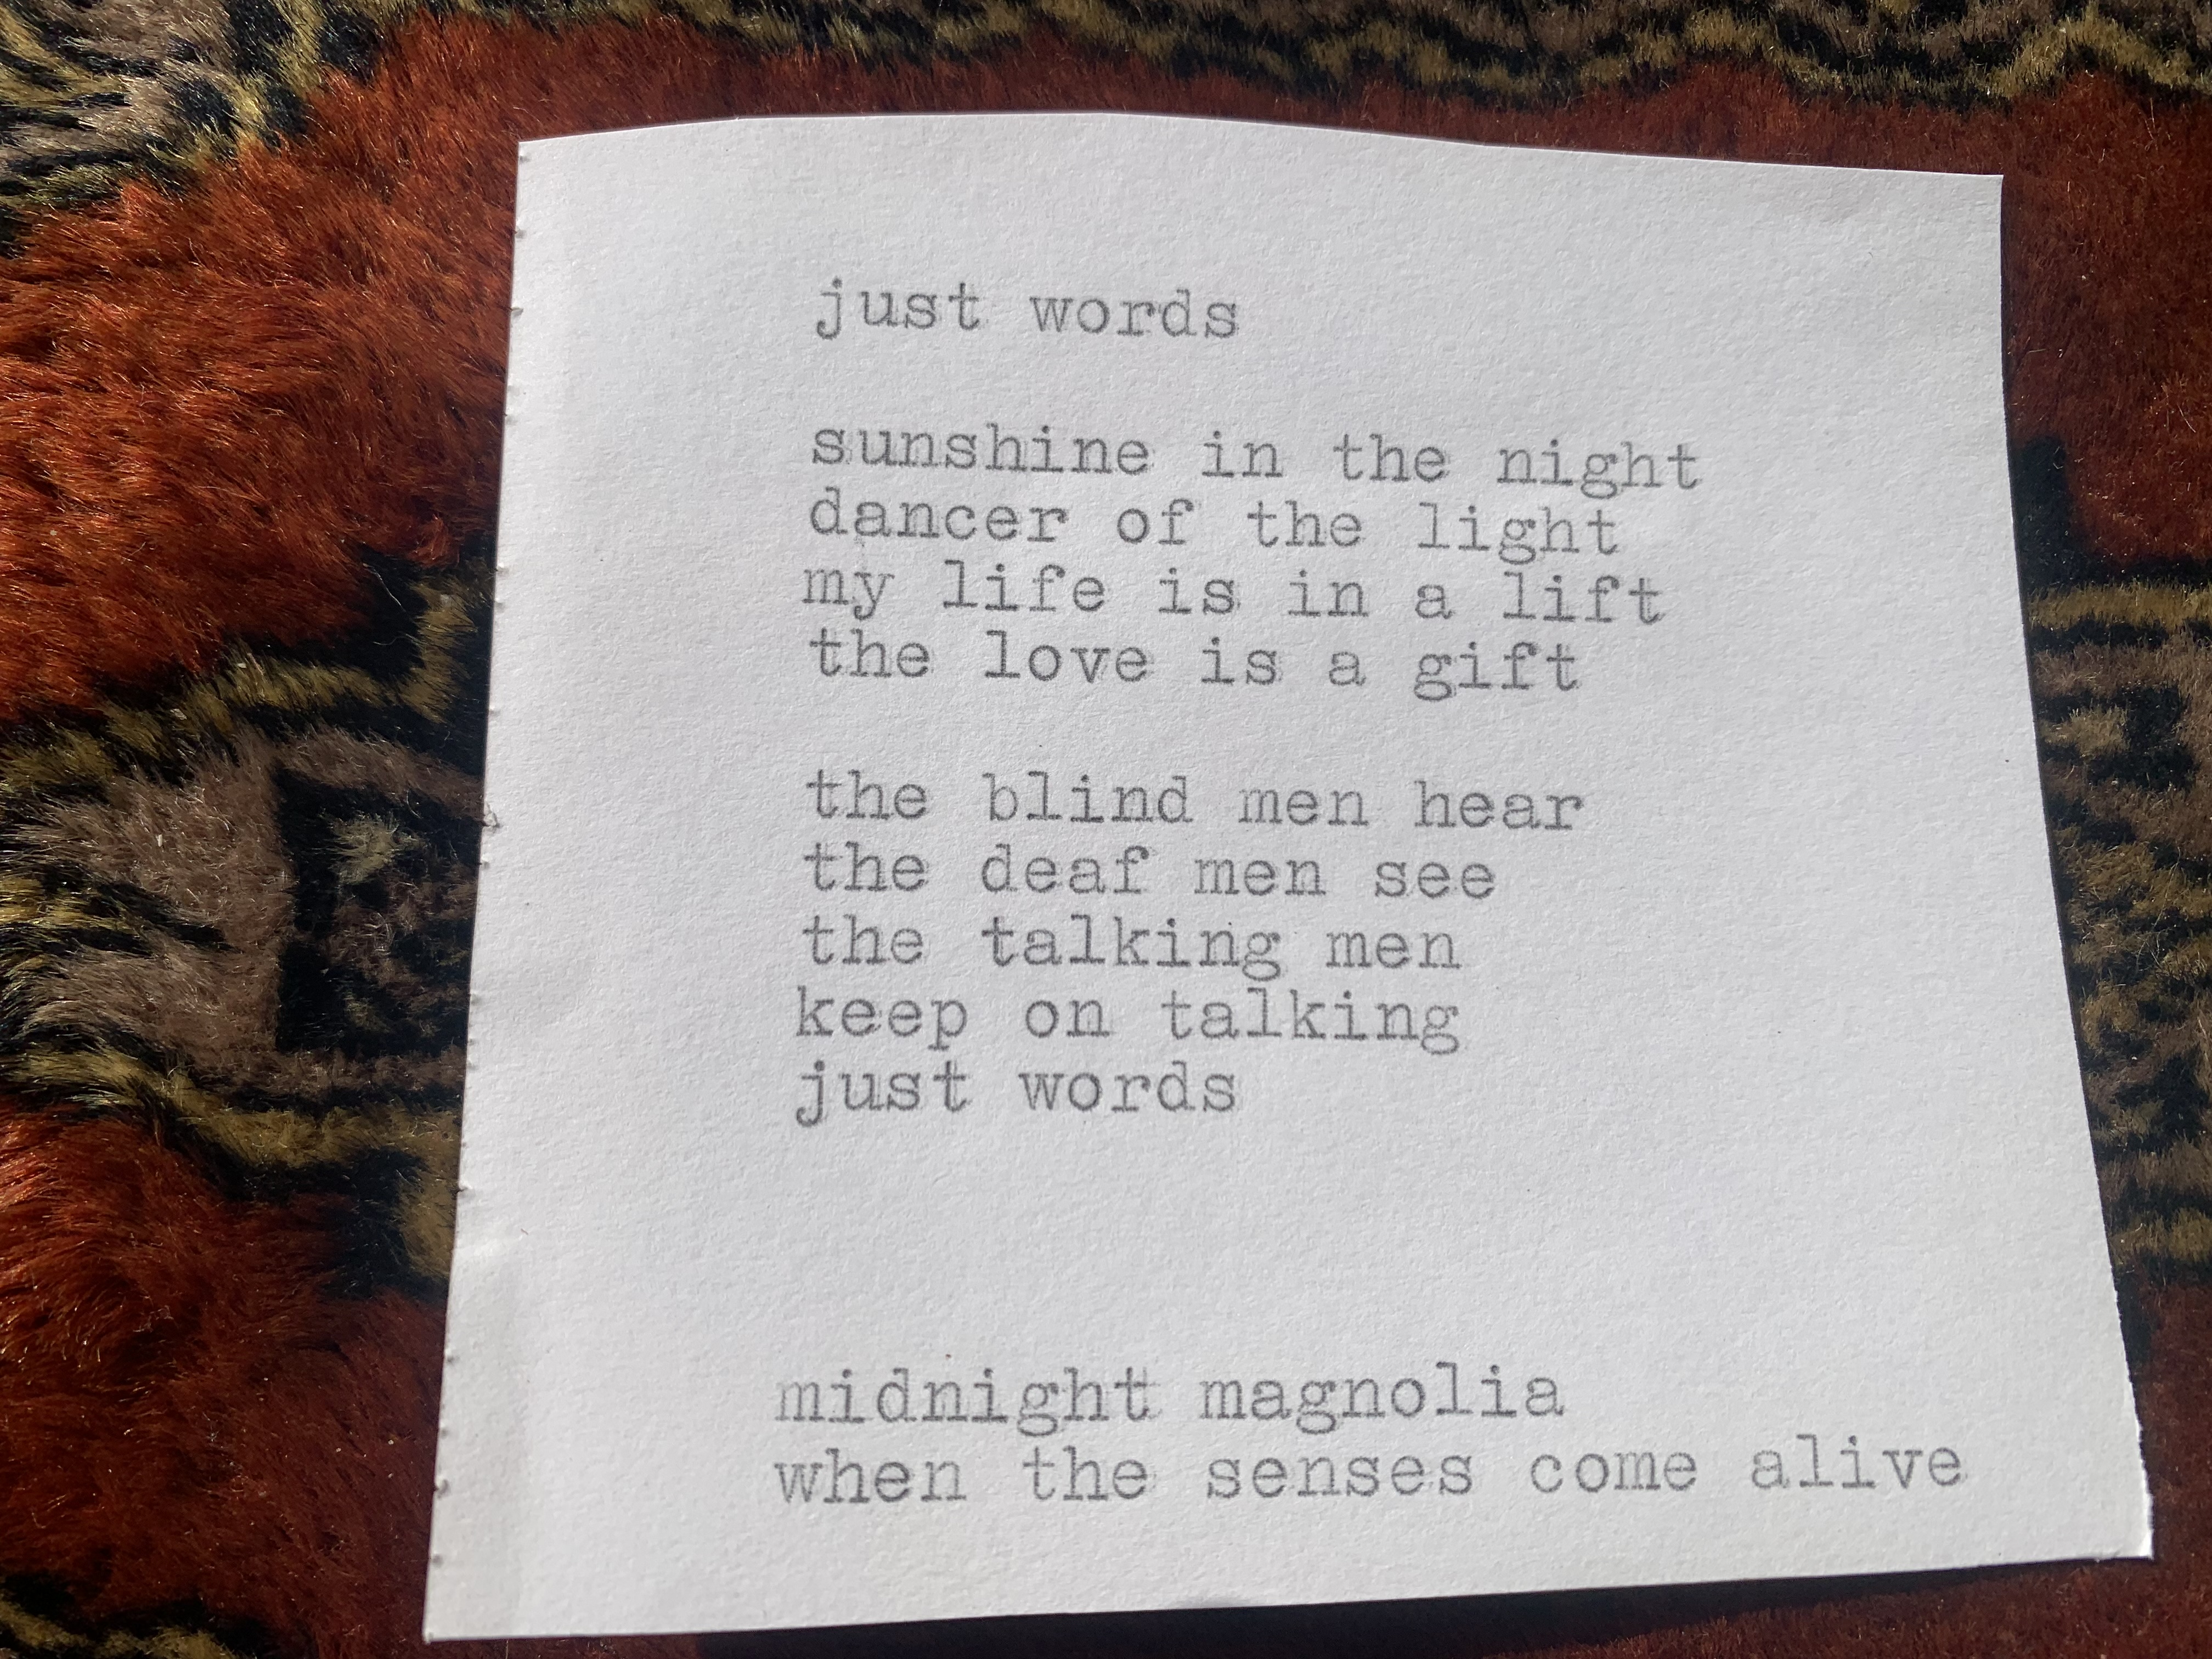 just words
sunshine in the night
dancer of the light
my life is in a lift
the love is a gift
the blind men hear
the deaf men see
the talking men
keep on talking
just words
midnight magnolia
when the senses come alive